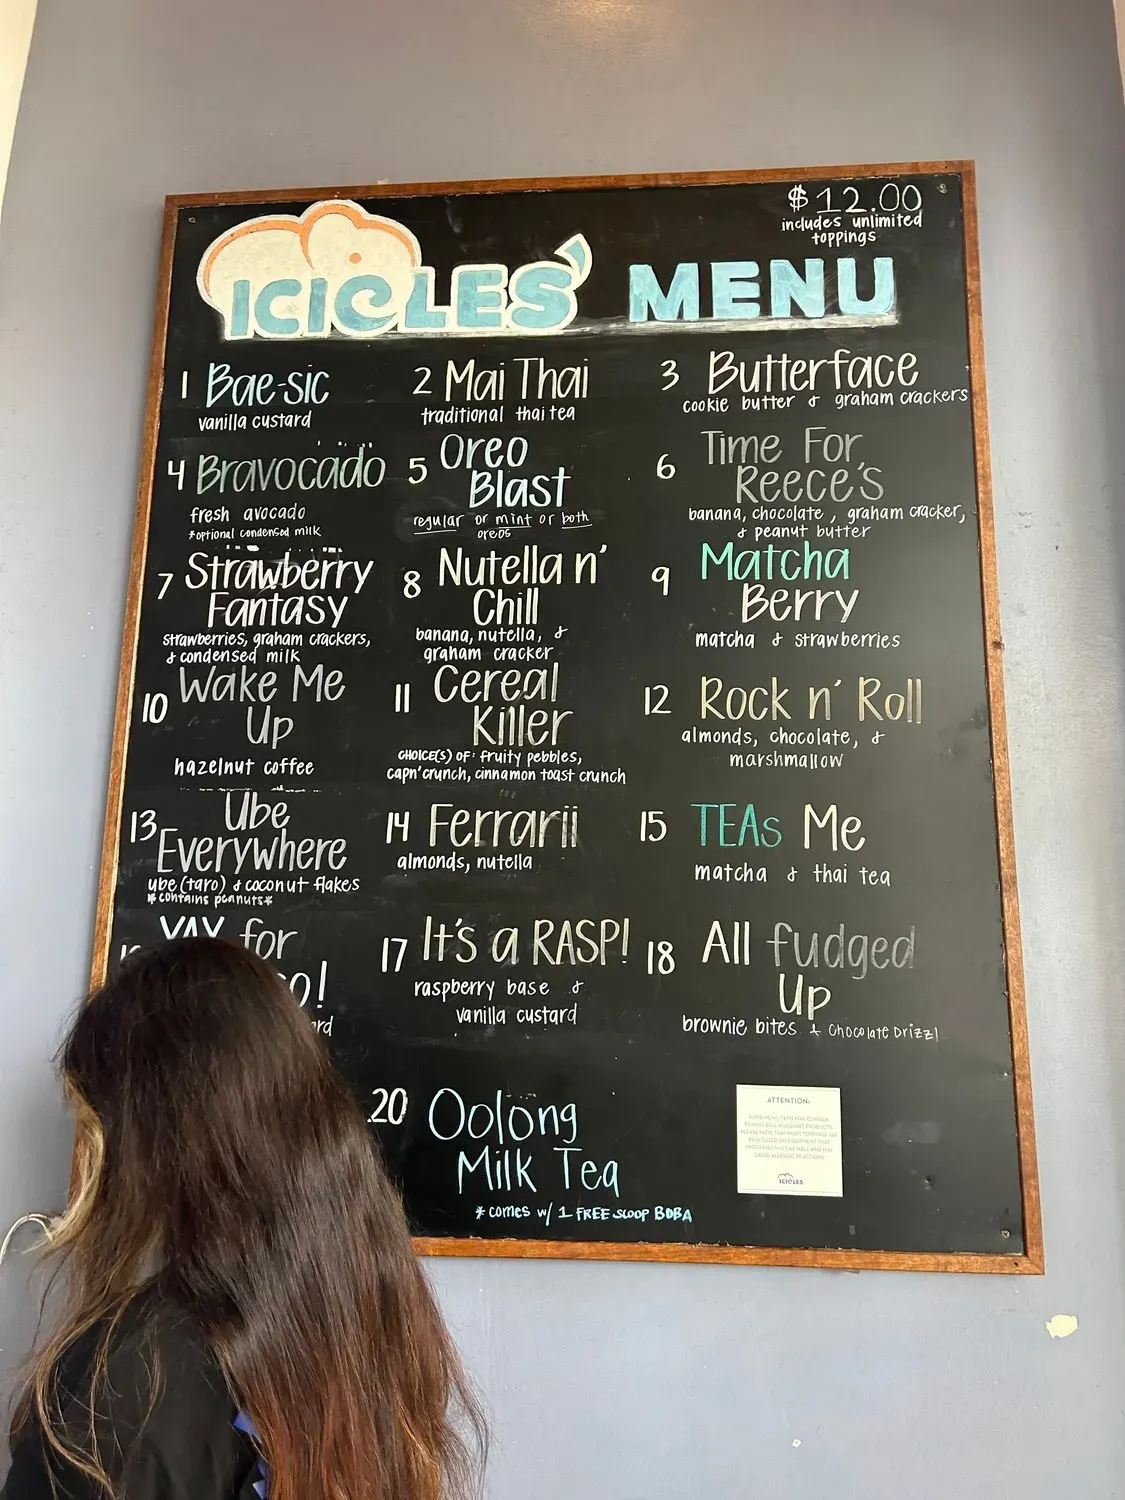 $12.00
includes unlimited
toppings
ICICLES' MENU
1 Bae-sic
vanilla custard
2 Mai Thai
traditional thai tea
3 Butterface
cookie butter & graham crackers
4 Bravocado
fresh avocado
*optional condensed milk
5 Oreo
Blast
regular or mint or both
oreos
6 Time For
Reece's
banana, chocolate, graham cracker,
& peanut butter
7 Strawberry
Fantasy
strawberries, graham crackers,
& condensed milk
8 Nutella n'
Chill
banana, nutella, &
graham cracker
9 Matcha
Berry
matcha & strawberries
10 Wake Me
Up
hazelnut coffee
11 Cereal
Killer
CHOICE(S) OF: fruity pebbles,
capn'crunch, cinnamon toast crunch
12 Rock n' Roll
almonds, chocolate, &
marshmallow
13 Ube
Everywhere
ube (taro) & coconut flakes
*contains peanuts*
14 Ferrarii
almonds, nutella
15 TEAs Me
matcha & thai tea
YAY for
17 It's a RASP!
raspberry base &
vanilla custard
18 All fudged
Up
brownie bites & Chocolate Drizzl
20 Oolong
Milk Tea
*comes w/ 1 FREE scoop BOBA
ATTENTION:
SOME MENU ITEMS MAY CONTAIN
PEANUT, EGG, AND DAIRY PRODUCTS.
PLEASE NOTE THAT MOST TOPPINGS ARE
PROCESSED ON EQUIPMENT THAT
PROCESSES NUTS AS WELL AND MAY
CAUSE ALLERGIC REACTIONS
ICICLES